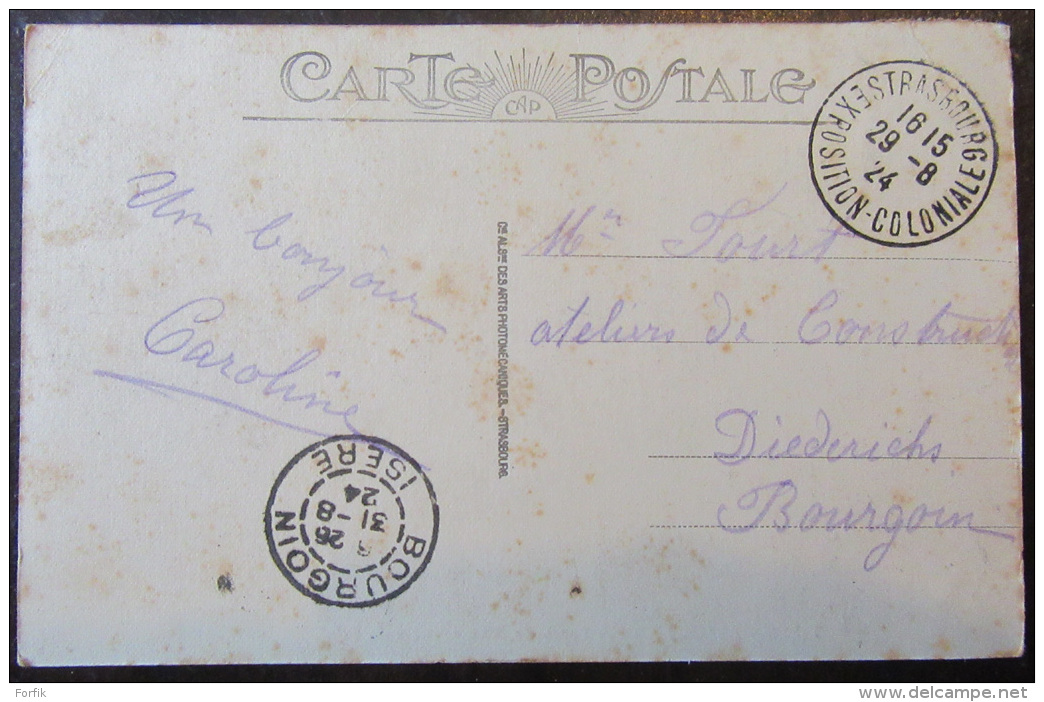 CARTE POSTALE
CAP
STRASBOURG
16 15
29 -8
24
EXPOSITION-COLONIALE
Un bonjour
Caroline
Cie ALSne DES ARTS PHOTOMÉCANIQUES.-STRASBOURG.
Mr Tourt
ateliers de Construct
Diederichs
Bourgoin
BOURGOIN
26
31-8
24
ISERE
Forfik
www.delcampe.net